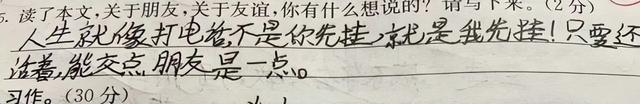 5. 读了本文,关于朋友,关于友谊,你有什么想说的?请写下来。(2分)
人生就像打电话,不是你先挂,就是我先挂!只要还
活着,能交点朋友是一点。
习作。(30分)